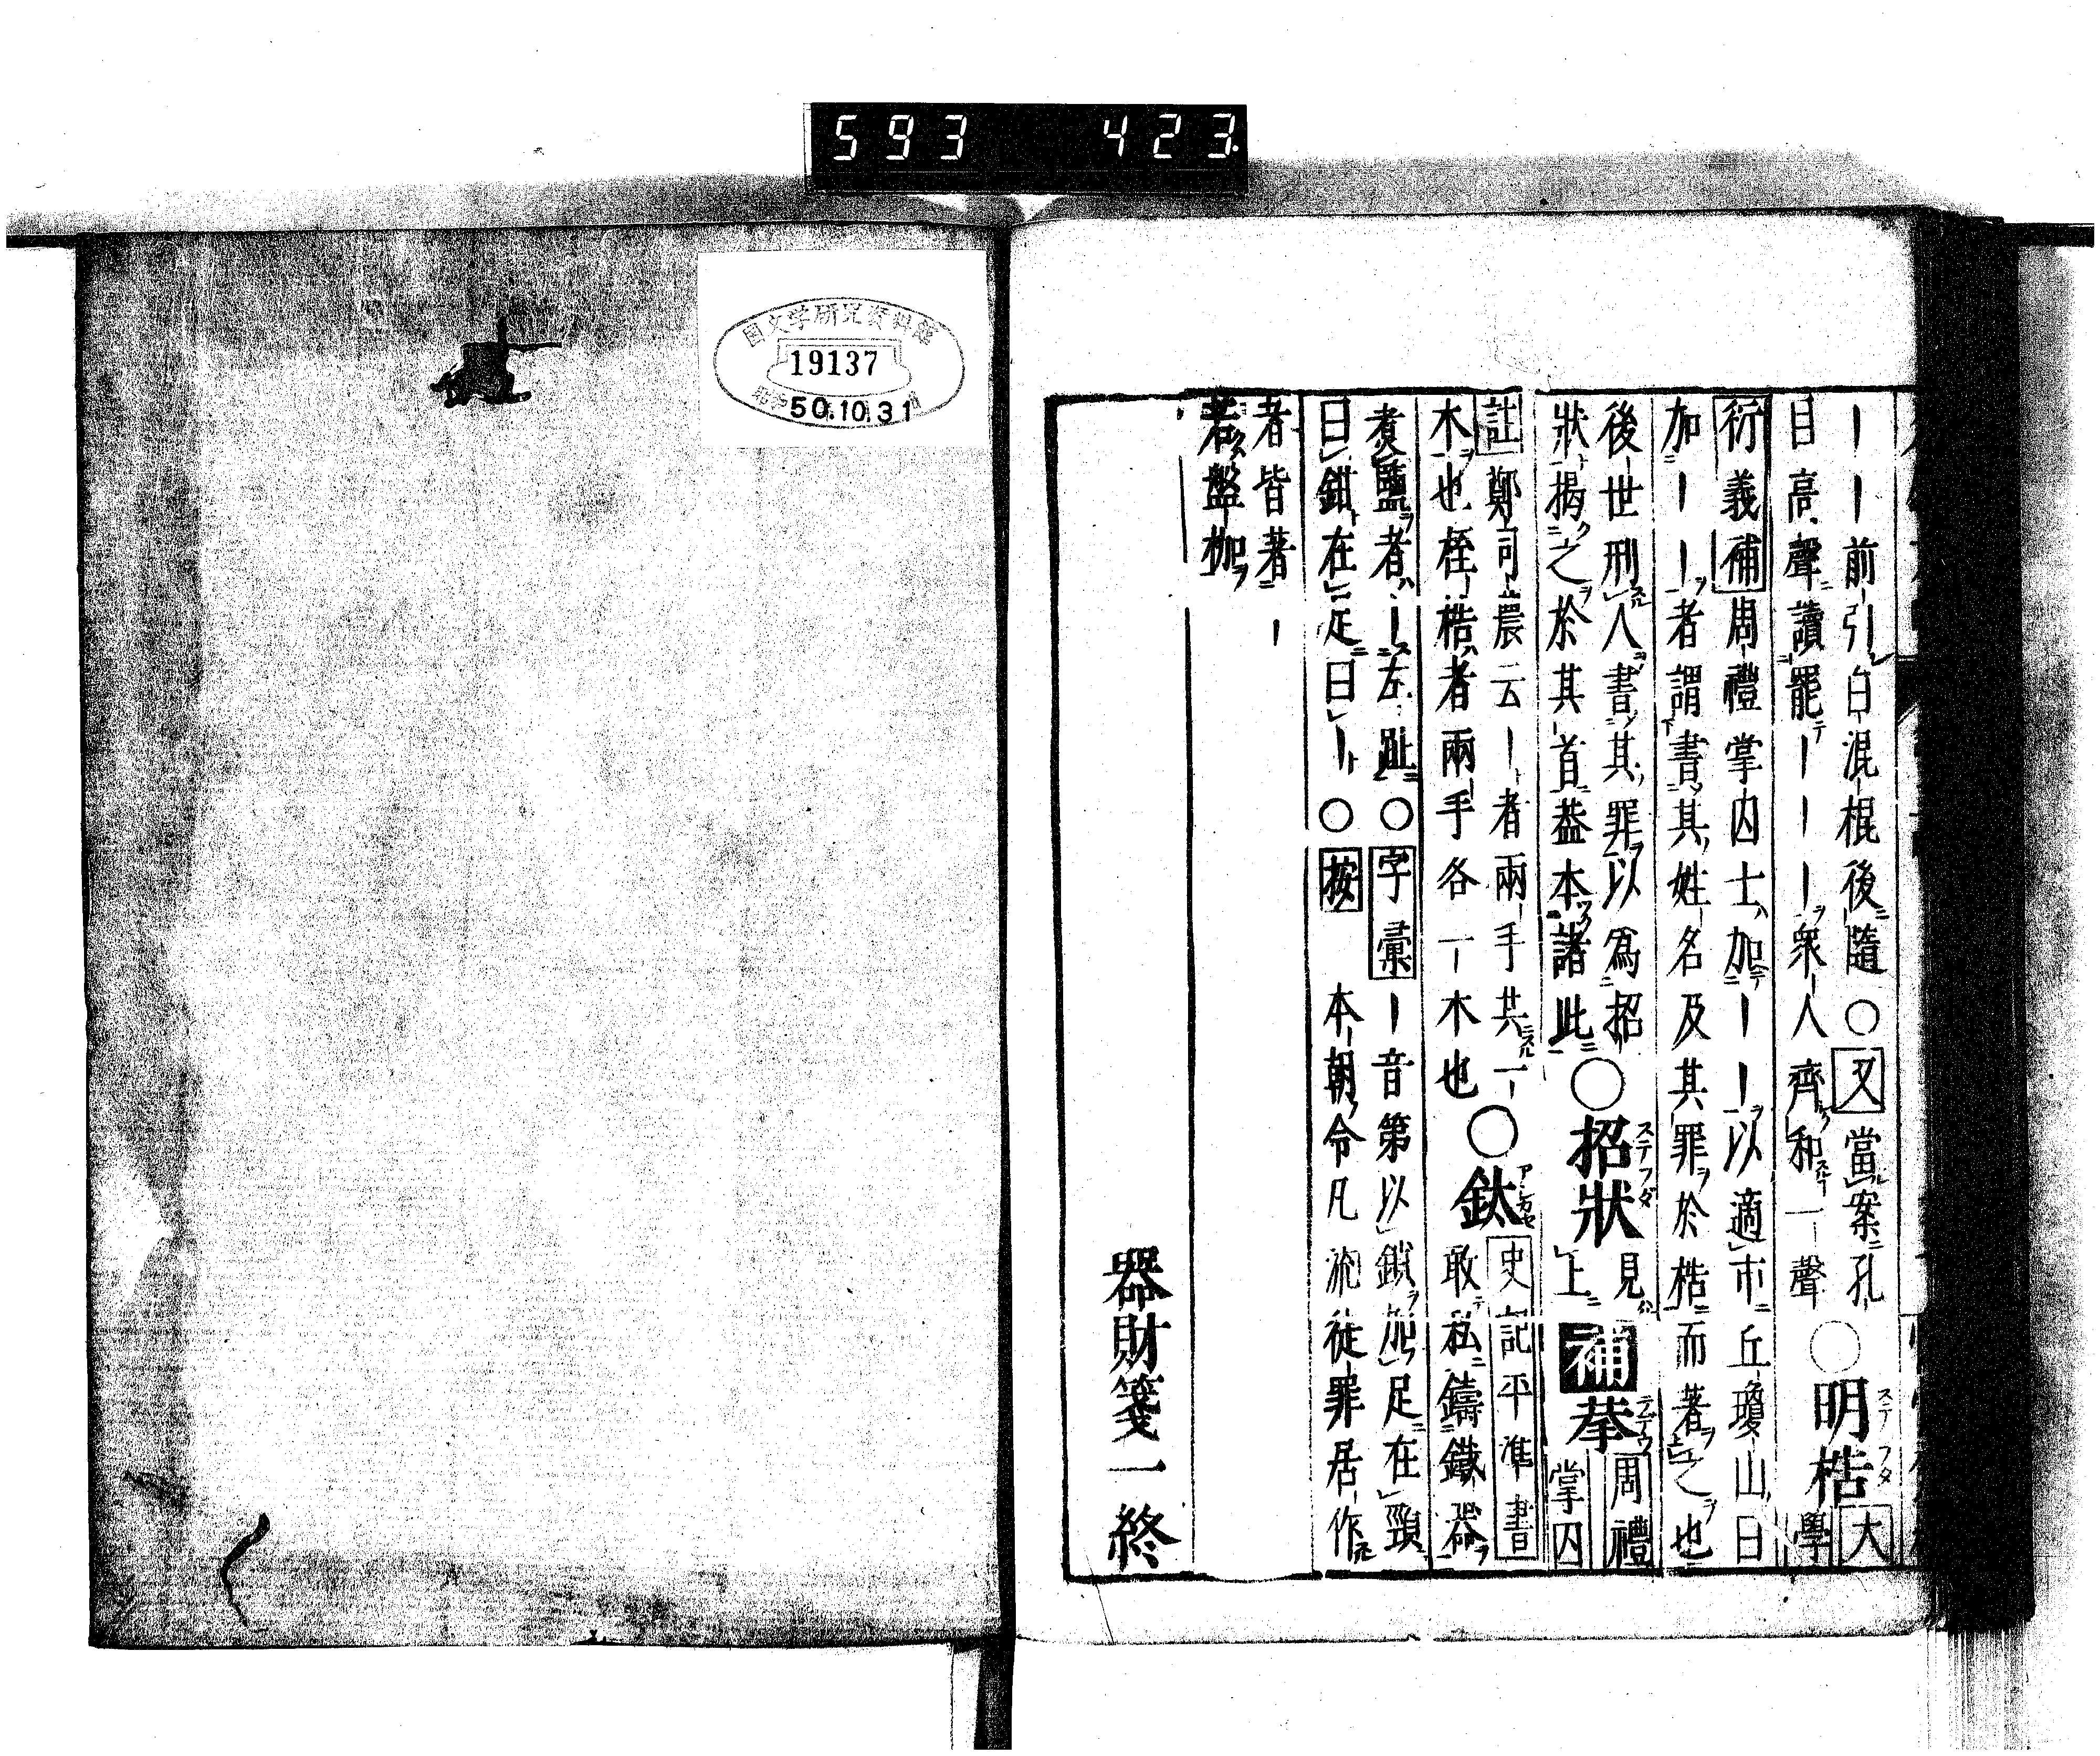 593 423
国文学研究資料館
19137
50.10.31
｜｜前引白混棍後隨○又當案孔
目高聲讀罷｜｜｜衆人齊和一聲○明梏大學
衍義補周禮掌囚士加｜｜以適市丘瓊山曰
加｜｜者謂書其姓名及其罪於梏而著之也
後世刑人書其罪以為招
狀揭之於其首葢本諸此○招狀見上補拲周禮掌囚
註鄭司農云｜者兩手共一
木也桎梏者兩手各一木也○釱史記平準書敢私鑄鐵器
煑鹽者｜左趾○字彙｜音第以鎖加足在頸
曰鉗在足曰｜○按本朝令凡流徒罪居作
者皆著｜
若盤枷
器財箋一終